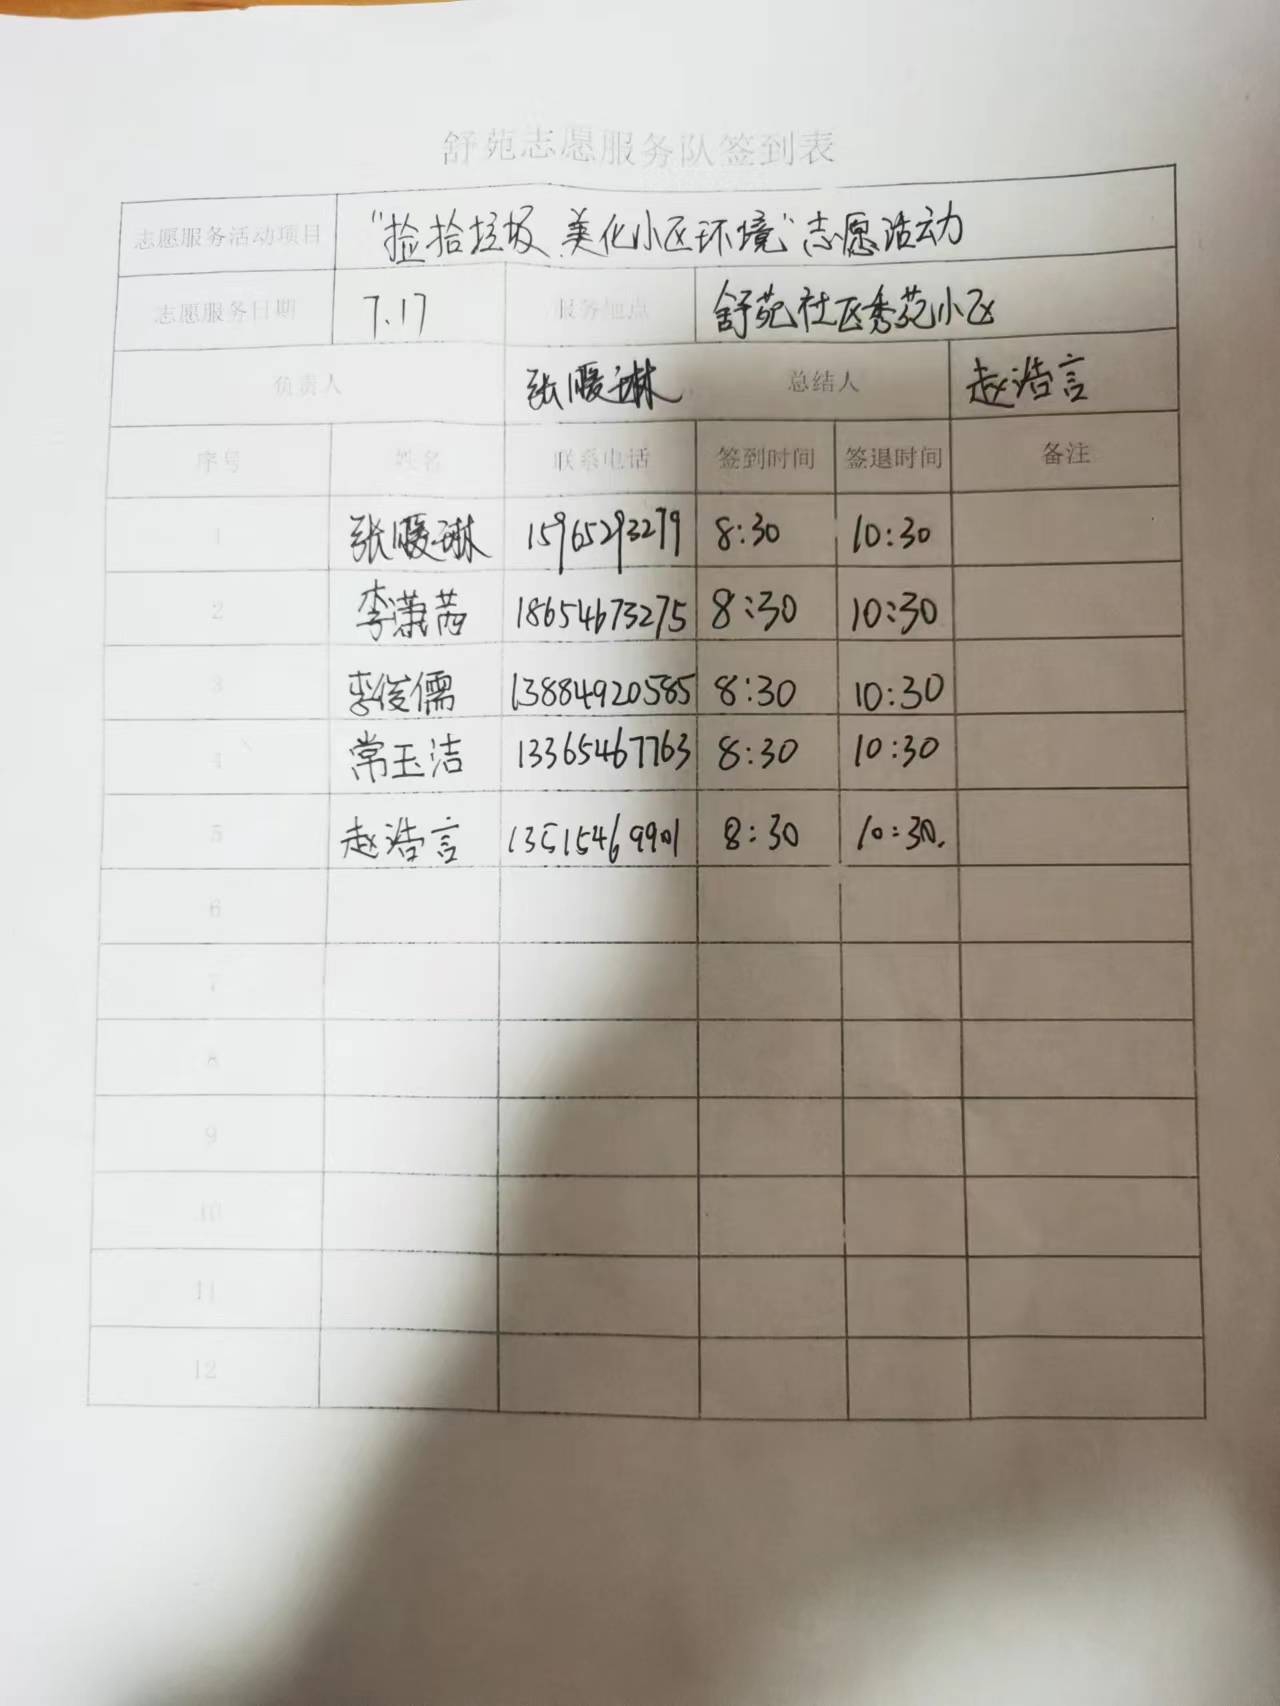 舒苑志愿服务队签到表
志愿服务活动项目 “捡拾垃圾、美化小区环境”志愿活动
志愿服务日期 7.17 服务地点 舒苑社区秀苑小区
负责人 张暖琳 总结人 赵浩言
序号 姓名 联系电话 签到时间 签退时间 备注
1 张暖琳 15965293279 8:30 10:30
2 李潇茜 18654673275 8:30 10:30
3 李俊儒 13884920585 8:30 10:30
4 常玉洁 13365467763 8:30 10:30
5 赵浩言 13515469901 8:30 10:30.
6
7
8
9
10
11
12